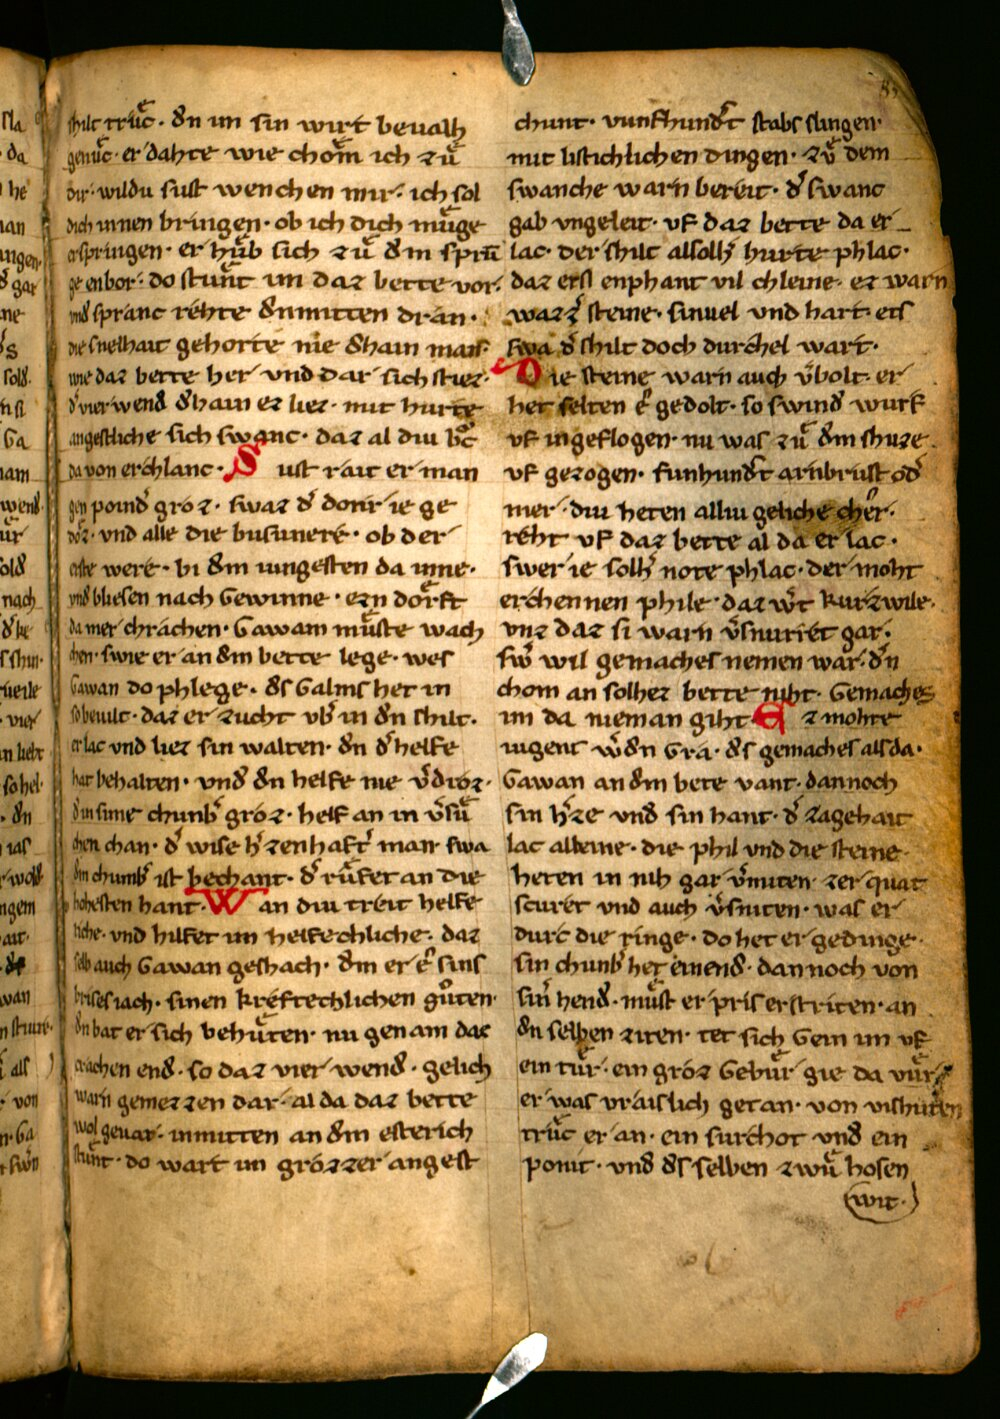 shilt truͦc · dn im sin wirt beualh
genuͦc · er dahte wie chom ich zuͦ
dir · wildu sust wenchen mir · ich sol
dich innen bringen · ob ich dich muͤge
erspringen · er huͦb sich zuͦ dm sprū
ge enbor · do stuͦnt im daz bette vor ·
vnd spranc rehte dn mitten dran ·
die snelhait gehorte nie dhain man ·
wie daz bette her vnd dar sich stiez ·
d͛ vier wend dhain ez liez · mit hurte
angestliche sich swanc · daz al div bͦc
da von erchlanc · Sust rait er man
gen poind͛ groz · swaz d͛ donr ie ge
doz · vnd alle die busunere · ob der
erste were · bi dm iungesten da inne ·
vnd bliesen nach Gewinne · ezn dorft
da mer chrachen · Gawam muͤste wach
chen · swie er an dm bette lege · wes
Gawan do phlege · ds Galms het in
so beuilt · daz er zucht vb͛ in dn shilt ·
er lac vnd liez sin walten · dn d͛ helfe
hat behalten · vnd dn helfe nie v͛droz ·
d͛ in sime chunb͛ groz · helf an in v͛suͦ
chen chan · d͛ wise h͛zenhaft͛ man swa
dm chumb͛ ist bechant · d͛ ruͤfet an die
hohesten hant · Wan div treit helfe
riche · vnd hilfet im helfechliche · daz
selb auch Gawan geshach · dm er e͛ sins
prises iach · sinen kreftechlichen guͦten ·
dn bat er sich behuͤten · nu genam daz
crachen end · so daz vier wend · gelich
warn gemezzen dar · al da daz bette
wol geuar · inmitten an dm esterich
stuͦnt · do wart im grozzer angest
chunt · vunfhund͛t stabs slingen ·
mit listichlichen dingen · zuͦ dem
swanche warn bereit · d͛ swanc
gab vngeleit · vf daz bette da er
lac · der shilt alsolh͛ hurte phlac ·
daz ersi enphant vil chleine · ez warn
wazz͛ steine · sinuel vnd hart · ets
swa d͛ shilt doch durchel wart ·
Die steine warn auch v͛bolt · er
het selten e͛ gedolt · so swind wurf
vf in geflogen · nu was zuͦ dm shuze
vf gezogen · funhund͛t armbrust od͛
mer · div heten alliu geliche cher ·
reht vf daz bette al da er lac ·
swer ie solh͛ note phlac · der moht
erchennen phile · daz w͛t kurzwile ·
vnz daz si warn v͛snurret gar ·
sw͛ wil gemaches nemen war · dn
chom an solhez bette niht · Gemaches
im da nieman giht · Ez mohte
iugent w͛dn Gra · ds gemaches als da ·
Gawan an dm bete vant · dannoch
sin h͛ze vnd sin hant · d͛ zagehait
lac alleine · die phil vnd die steine
heten in nih gar v͛miten · zer quat
scuret vnd auch v͛sniten · was er
durc die ringe · do het er gedinge ·
sin chunb͛ het einend · dannoch von
sin͛ hend · muͤst er pris erstriten · an
dn selben ziten · tet sich Gein im vf
ein tuͤr · ein groz Gebuͦr gie da vuͤr
er was vraislich getan · von vishuten
truͦc er an · ein surchot vnd ein
ponit · vnd ds selben zwuͦ hosen
wit ·